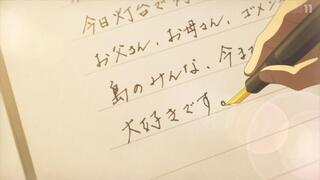 今日灯台で
お父さん、お母さん、ゴメン
島のみんな、今ま
大好きです。
11